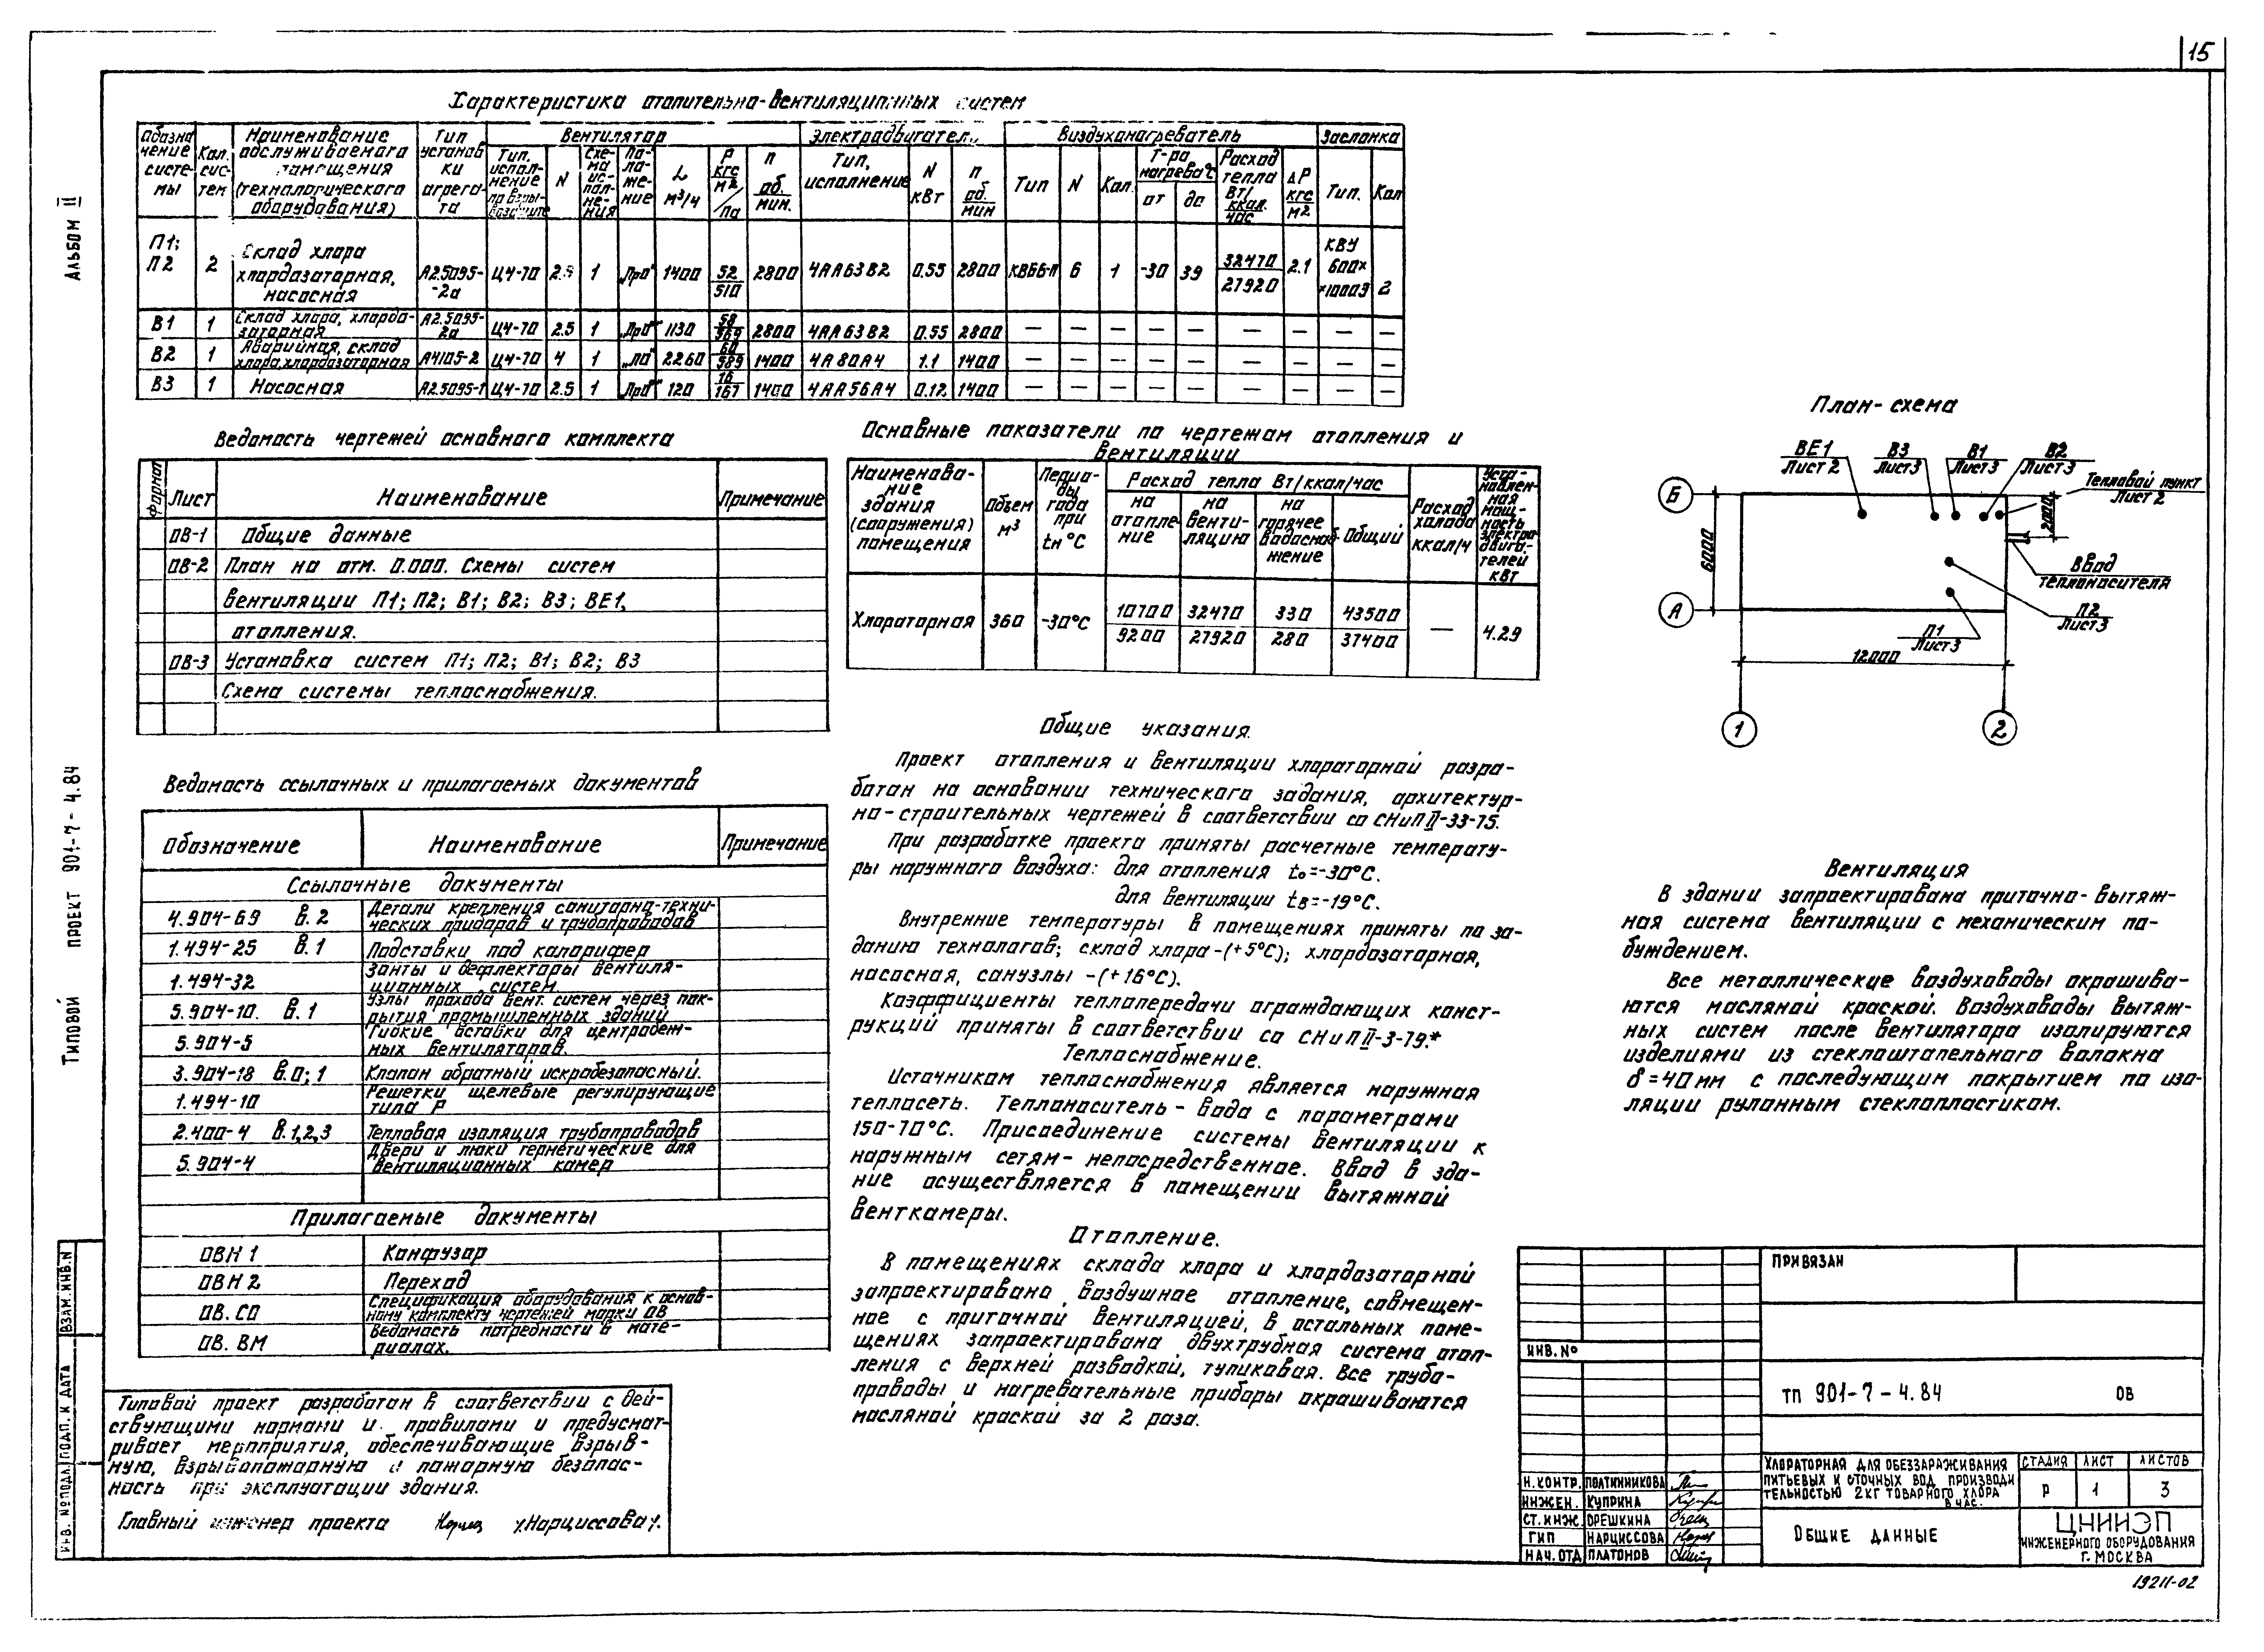 15
Альбом II
Типовой проект 901-7-4.84
Характеристика отопительно-вентиляционных систем
Обозначение системы
Кол. систем
Наименование обслуживаемого помещения (технологического оборудования)
Тип установки агрегата
Вентилятор
Электродвигатель
Воздухонагреватель
Заслонка
Тип, исполнение по взрывозащите
N
Схема исполнения
Положение
L м³/ч
P кгс/м2 / Па
n об/мин.
Тип, исполнение
N кВт
n об/мин
Тип
N
Кол.
Т-ра нагрева°С
от
до
Расход тепла Вт/ккал.час
ΔP кгс/м2
Тип.
Кол
П1; П2 2 Склад хлора хлордозаторная, насосная А2.5095-2а Ц4-70 2.5 1 „Пр0° 1400 52/510 2800 4АА63В2 0.55 2800 КВББ-П 6 1 -30 39 32470/27920 2.1 КВУ 600×1000Э 2
В1 1 Склад хлора, хлордозаторная А2.5095-2а Ц4-70 2.5 1 „Пр0° 1130 58/569 2800 4АА63В2 0.55 2800 — — — — — — — — —
В2 1 Аварийная, склад хлора, хлордозаторная А4105-2 Ц4-70 4 1 „Л0° 2260 60/589 1400 4А80А4 1.1 1400 — — — — — — — — —
В3 1 Насосная А2.5095-1 Ц4-70 2.5 1 „Пр0° 120 16/167 1400 4АА56А4 0.12 1400 — — — — — — — — —
Ведомость чертежей основного комплекта
Формат Лист Наименование Примечание
ОВ-1 Общие данные
ОВ-2 План на отм. 0.000. Схемы систем
вентиляции П1; П2; В1; В2; В3; ВЕ1,
отопления.
ОВ-3 Установка систем П1; П2; В1; В2; В3
Схема системы теплоснабжения.
Основные показатели по чертежам отопления и
вентиляции
Наименование здания (сооружения) помещения
Объем м³
Периоды года при tн °С
Расход тепла Вт/ккал/час
на отопление
на вентиляцию
на горячее водоснабжение
Общий
Расход холода ккал/ч
Установленная мощность электродвигателей кВт
Хлораторная 360 -30°С 10700/9200 32470/27920 330/280 43500/37400 — 4.29
План-схема
ВЕ1
Лист 2
В3
Лист3
В1
Лист3
В2
Лист3
Тепловой пункт
Лист 2
Б
А
6000
2000
Ввод
теплоносителя
П2
Лист3
П1
Лист3
12000
1
2
Ведомость ссылочных и прилагаемых документов
Обозначение Наименование Примечание
Ссылочные документы
4.904-69 в.2 Детали крепления санитарно-техни-
ческих приборов и трубопроводов
1.494-25 в.1 Подставки под калорифер
1.494-32 Зонты и дефлекторы вентиля-
ционных систем
5.904-10. в.1 Узлы прохода вент. систем через пок-
рытия промышленных зданий
5.904-5 Гибкие вставки для центробеж-
ных вентиляторов.
3.904-18 в.0;1 Клапан обратный искробезопасный.
1.494-10 Решетки щелевые регулирующие
типа Р
2.400-4 в.1,2,3 Тепловая изоляция трубопроводов
5.904-4 Двери и люки герметические для
вентиляционных камер
Прилагаемые документы
ОВН 1 Конфузор
ОВН 2 Переход
ОВ. СО Спецификация оборудования к основ-
ному комплекту чертежей марки ОВ
ОВ. ВМ Ведомость потребности в мате-
риалах.
Общие указания.
Проект отопления и вентиляции хлораторной разра-
ботан на основании технического задания, архитектур-
но-строительных чертежей в соответствии со СНиП II-33-75.
При разработке проекта приняты расчетные температу-
ры наружного воздуха: для отопления to=-30°С.
для вентиляции tв=-19°С.
Внутренние температуры в помещениях приняты по за-
данию технологов; склад хлора-(+5°С); хлордозаторная,
насосная, санузлы -(+16°С).
Коэффициенты теплопередачи ограждающих конст-
рукций приняты в соответствии со СНиП II-3-79.*
Теплоснабжение.
Источником теплоснабжения является наружная
теплосеть. Теплоноситель - вода с параметрами
150-70°С. Присоединение системы вентиляции к
наружным сетям- непосредственное. Ввод в зда-
ние осуществляется в помещении вытяжной
венткамеры.
Отопление.
В помещениях склада хлора и хлордозаторной
запроектировано воздушное отопление, совмещен-
ное с приточной вентиляцией, в остальных поме-
щениях запроектирована двухтрубная система отоп-
ления с верхней разводкой, тупиковая. Все трубо-
проводы и нагревательные приборы окрашиваются
масляной краской за 2 раза.
Вентиляция
В здании запроектирована приточно-вытяж-
ная система вентиляции с механическим по-
буждением.
Все металлические воздуховоды окрашива-
ются масляной краской. Воздуховоды вытяж-
ных систем после вентилятора изолируются
изделиями из стеклоштапельного волокна
δ=40мм с последующим покрытием по изо-
ляции рулонным стеклопластиком.
Типовой проект разработан в соответствии с дей-
ствующими нормами и правилами и предусмат-
ривает мероприятия, обеспечивающие взрыв-
ную, взрывопожарную и пожарную безопас-
ность при эксплуатации здания.
Главный инженер проекта /Нарциссова/.
Взам. инв. N
Подп. и дата
Инв. № подл.
Привязан
Инв. №
ТП 901-7-4.84 ОВ
Н. контр. Полтинникова
Инжен. Куприна
Ст. инж. Орешкина
ГИП Нарциссова
Нач. отд Платонов
Хлораторная для обеззараживания
питьевых и сточных вод производи
тельностью 2кг товарного хлора
в час.
Стадия Лист Листов
Р 1 3
Общие данные
ЦНИИЭП
инженерного оборудования
г. Москва
19211-02